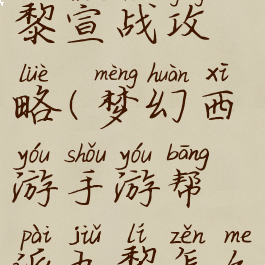 黎宣战攻
lüè mèng huàn xī
略(梦幻西
yóu shǒu yóu bāng
游手游帮
pài jiǔ lí zěn me
派九黎怎么